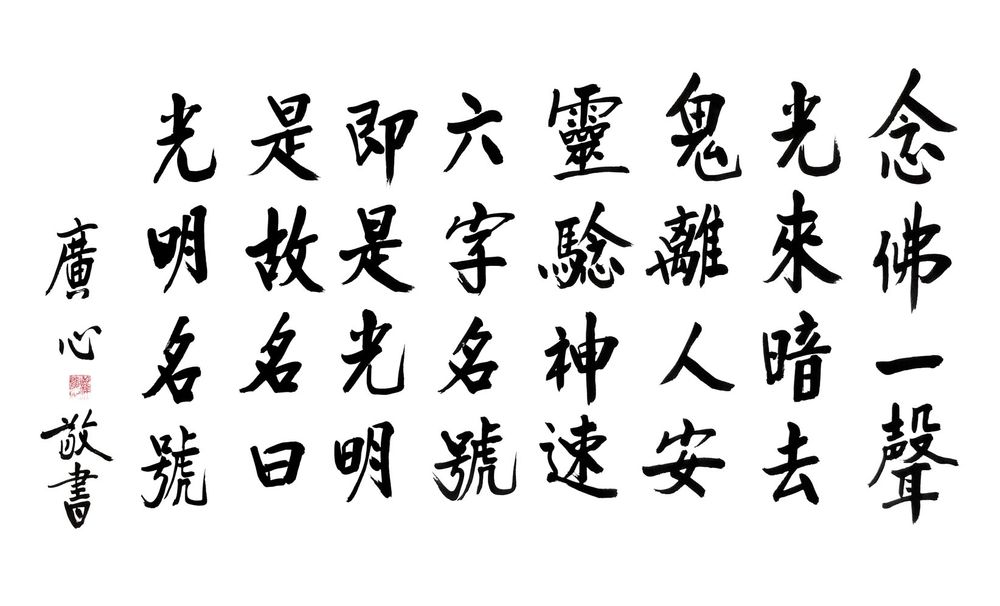 念佛一聲
光來暗去
鬼離人安
靈驗神速
六字名號
即是光明
是故名曰
光明名號
廣心
敬書